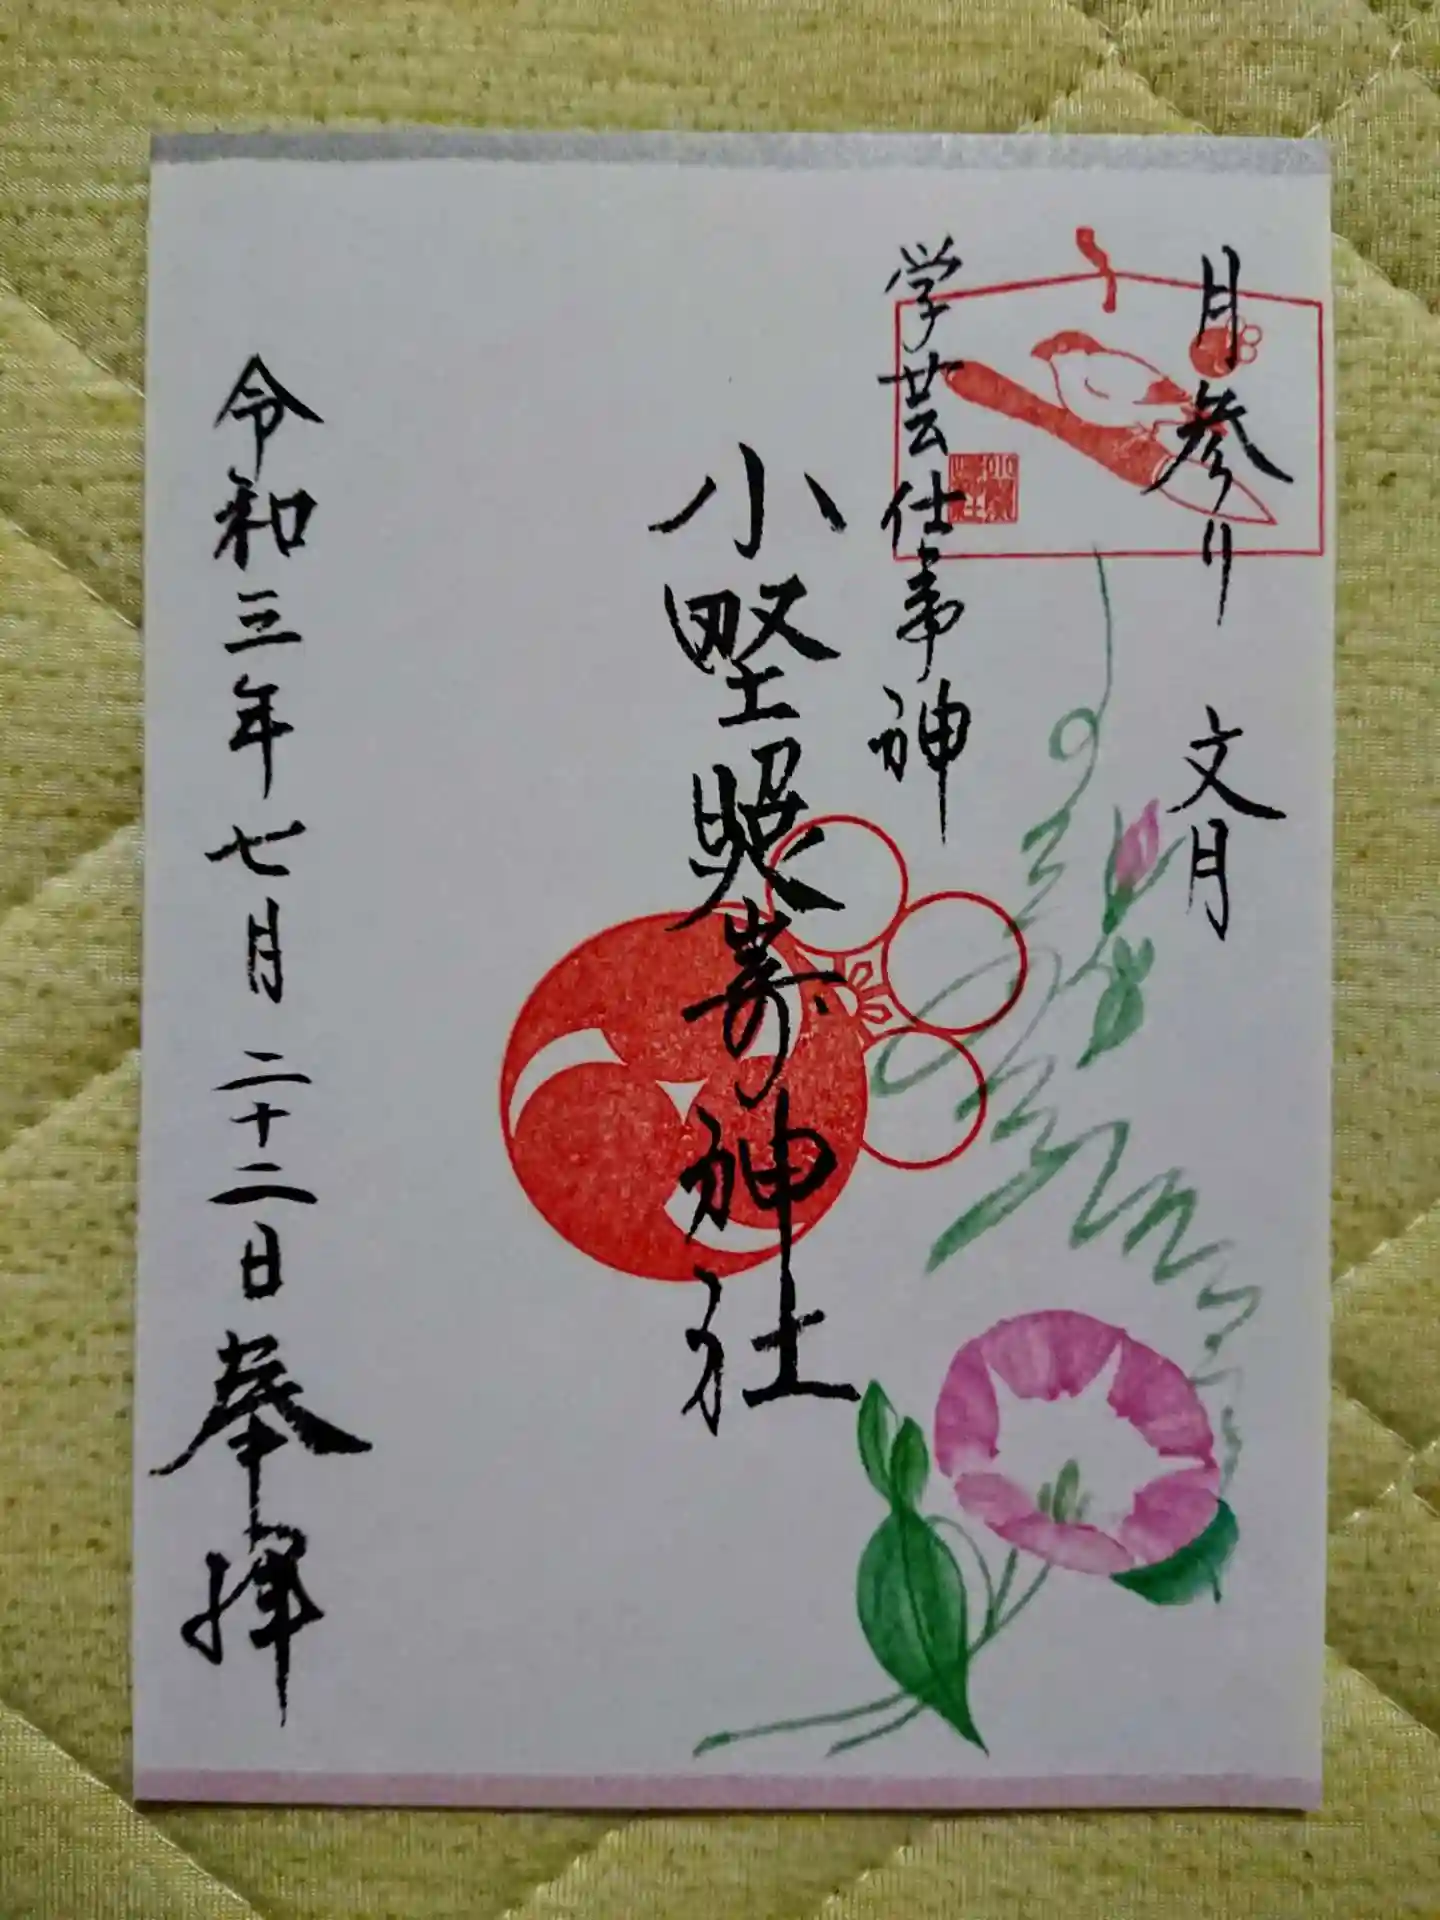 月参り 文月
学芸仕事神
小野照嵜神社
令和三年七月二十二日 奉拝